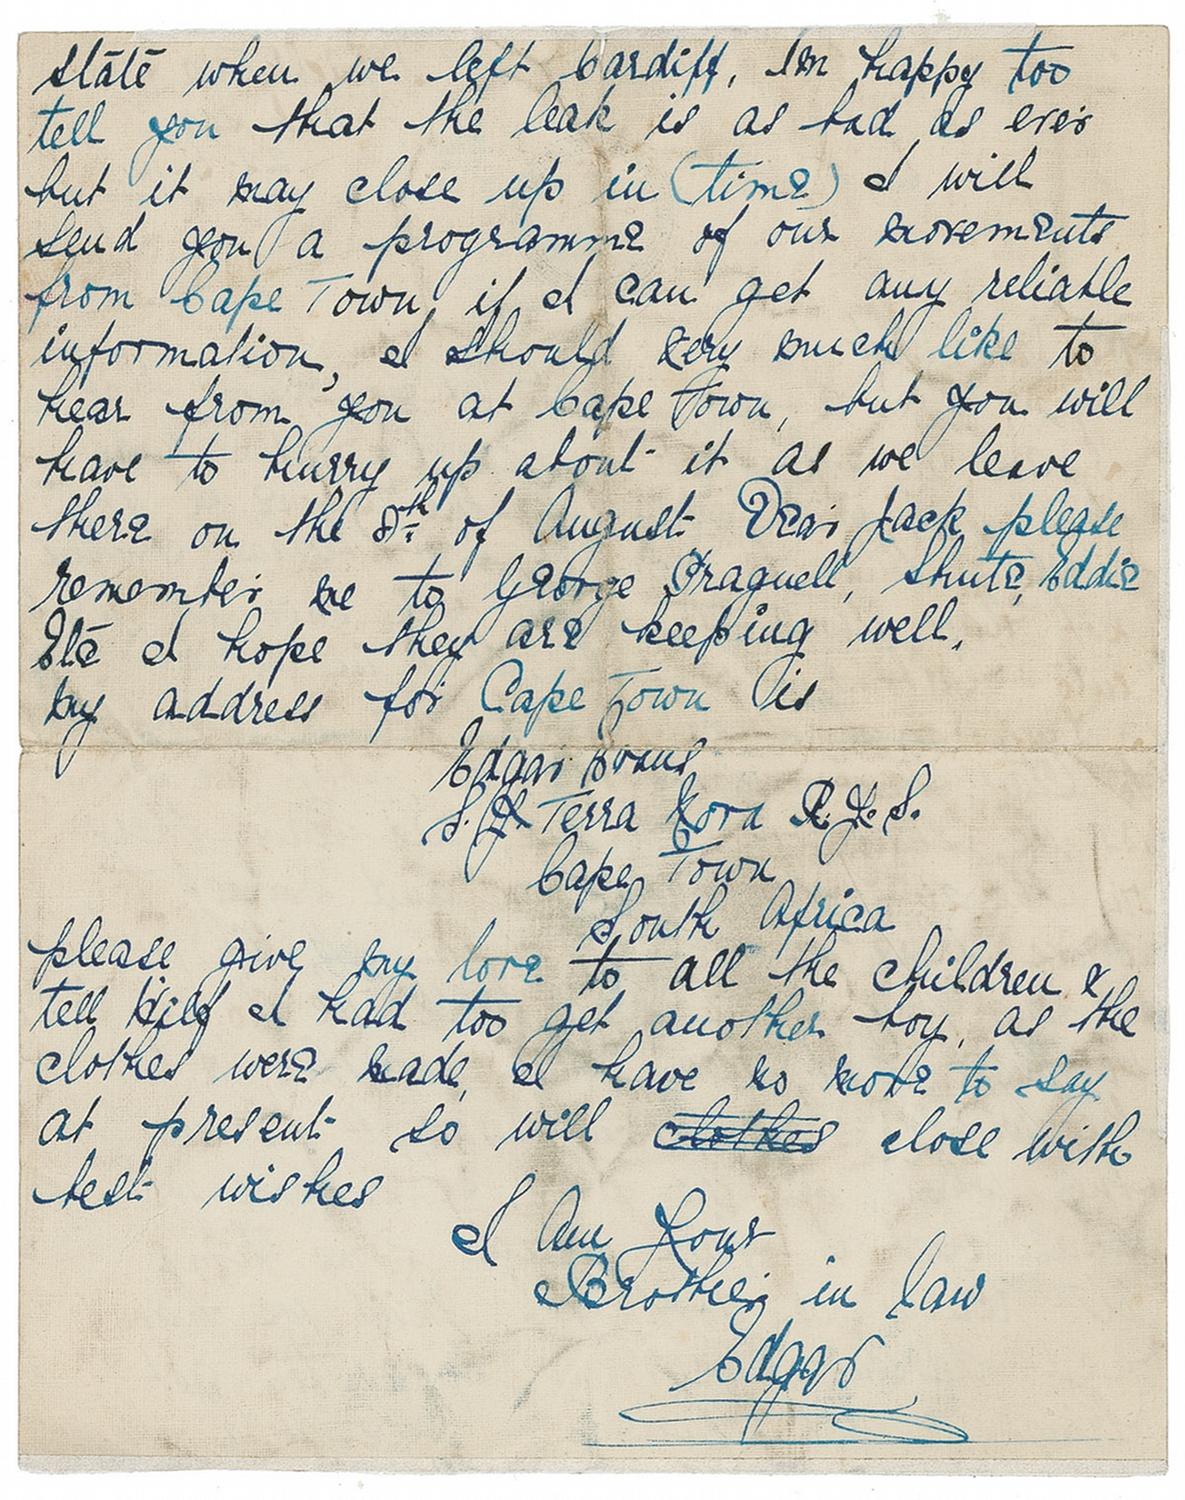 state when we left Cardiff, Im happy too
tell you that the leak is as bad as ever
but it may close up in (time) I will
send you a programme of our movements
from Cape Town, if I can get any reliable
information, I should very much like to
hear from you at Cape Town, but you will
have to hurry up about it as we leave
there on the 8th of August Dear Jack please
remember me to George Pragnell, Shute, Eddie
Etc I hope they are keeping well.
my address for Cape Town is
Edgar Evans
S.Y. Terra Nova R.Y.S.
Cape Town
South Africa
please give my love to all the children &
tell I had too get another boy, as the
clothes were made, I have no more to say
at present so will clothes close with
best wishes
I Am Your
Brother in law
Edgar